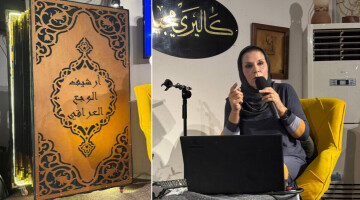 ارشيف
الوجع
العراقي
كاليري مجيد